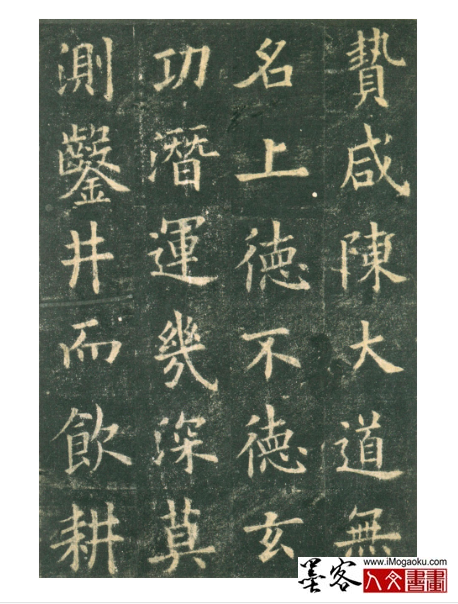 贄咸陳大道無
名上德不德玄
功潛運幾深莫
測鑿井而飲耕
墨客
www.iMogaoku.com
人文書畫